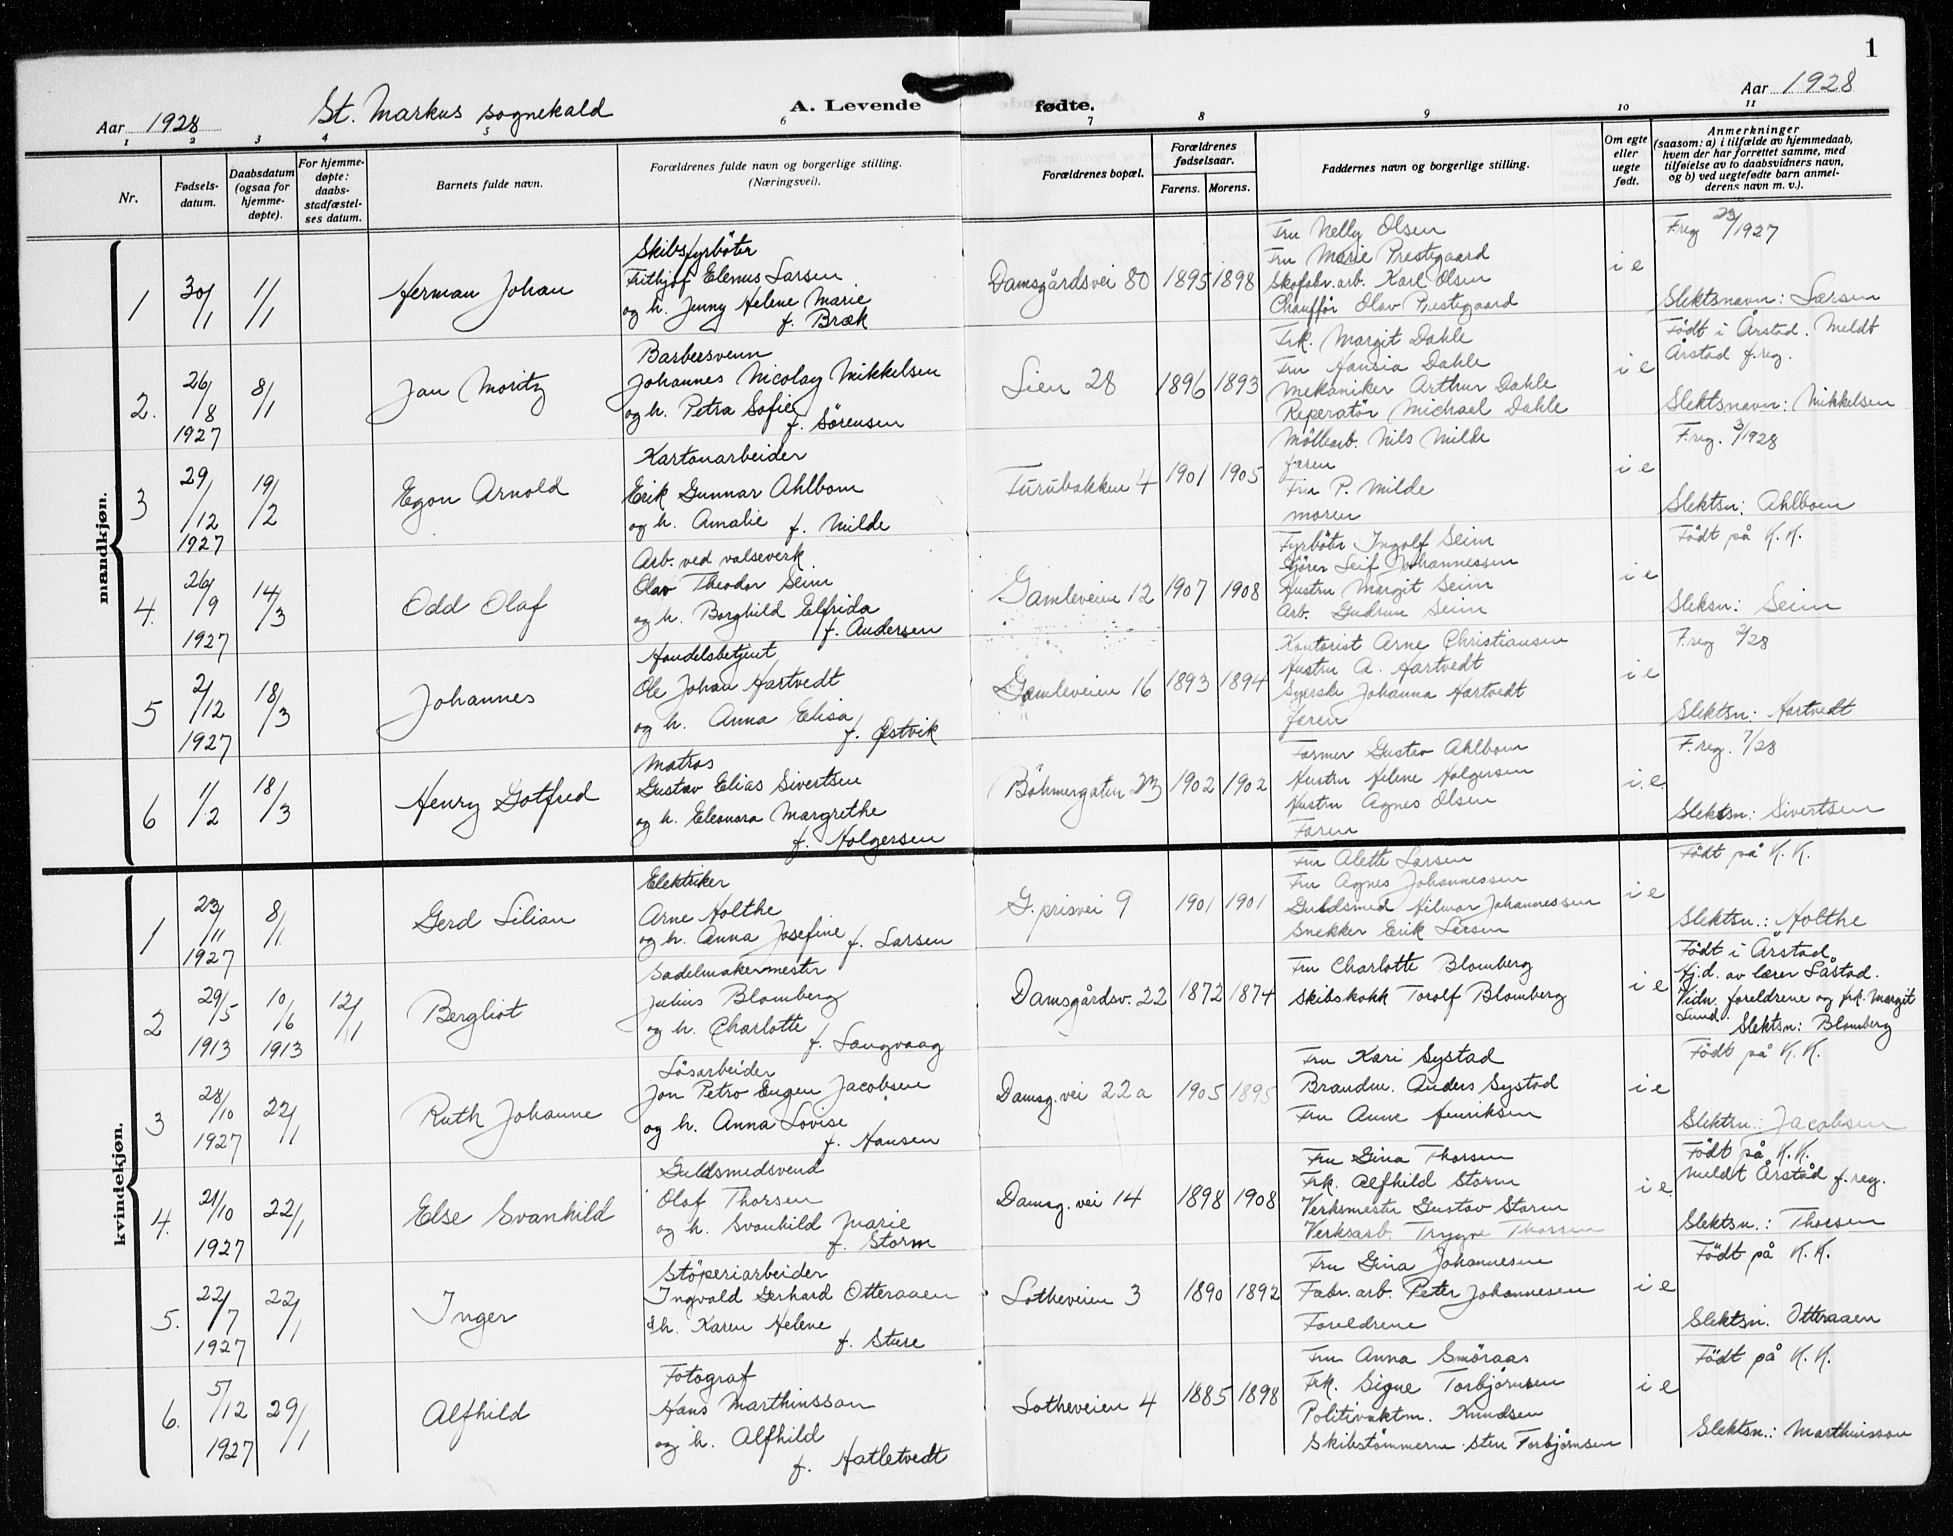 1
Aar 1928
St. Markus sognekald
A. Levende fødte.
Aar 1928
1 2 3 4 5 6 7 8 9 10 11
Nr.
Fødsels-
datum.
Daabsdatum
(ogsaa for
hjemme-
døpte).
For hjemme-
døpte:
daabs-
stadfæstel-
ses datum.
Barnets fulde navn.
Forældrenes fulde navn og borgerlige stilling.
(Næringsvei).
Forældrenes bopæl.
Forældrenes
fødselsaar.
Farens. Morens.
Faddernes navn og borgerlige stilling.
Om egte
eller
uegte
født.
Anmerkninger
(saasom: a) i tilfælde av hjemmedaab,
hvem der har forrettet samme, med
tilføielse av to daabsvidners navn,
og b) ved uegtefødte barn anmel-
derens navn m. v.).
mandkjøn.
1
30/11
1/1
Herman Johan
Skibsfyrbøter
Frithjof Elenus Larsen
og h. Jenny Helene Marie
f. Bræk
Damsgårdsvei 80
1895 1898
Fru Nelly Olsen
Fru Marie Prestegaard
Skofabr. arb. Karl Olsen
Chauffør Olav Prestegaard
i e
F.reg 23/1927
Slektsnavn: Larsen
2.
26/8
1927
8/1
Jan Moritz
Barbersvenn
Johannes Nicolay Mikkelsen
og h. Petra Sofie
f. Sörensen
Lien 28
1896 1893
Frk. Margit Dahle
Fru Hansia Dahle
Mekaniker Arthur Dahle
Reperatör Michael Dahle
i e
Födt i Årstad. Meldt
Årstad f.reg.
Slektsnavn: Mikkelsen
3
29/12
1927
19/2
Egon Arnold
Kartonarbeider
Erik Gunnar Ahlbom
og h. Amalie f. Milde
Furubakken 4
1901 1905
Möllearb. Nils Milde
faren
Fru P. Milde
moren
i e
F.reg. 3/1928
Slektsn: Ahlbom
4.
26/9
1927
14/3
Odd Olaf
Arb. ved valseverk
Olav Theodor Seim
og h. Borghild Elfrida
f. Andersen
Gamleveien 12
1907 1908
Fyrböter Ingolf Seim
Sjörer Leif Johannessen
Hustru Margit Seim
Arb. Gudrun Seim
i e
Födt på K. K.
Sleksn: Seim
5
2/12
1927
18/3
Johannes
Handelsbetjent
Ole Johan Hartvedt
og h. Anna Elisa
f. Østvik
Gamleveien 16
1893 1894
Kontorist Arne Christiansen
Hustru A. Hartvedt
Syerske Johanna Hartvedt
faren
i e
F.reg 2/28
Slektsn: Hartvedt
6
11/2
18/3
Henry Gotfred
Matros
Gustav Elias Sivertsen
og h. Eleonora Margrethe
f. Holgersen
Böhmergaten 23
1902 1902
Farmer Gustav Ahlbom
Hustru Helene Holgersen
Hustru Agnes Olsen
Faren
i e
F.reg. 7/28
Slektsn: Sivertsen
kvindekjøn.
1
23/11
1927
8/1
Gerd Lilian
Elektriker
Arne Holthe
og h. Anna Josefine f. Larsen
G. prisvei 9
1901 1901
Fru Alette Larsen
Fru Agnes Johannessen
Guldsmed Hilmar Johannessen
Snekker Erik Larsen
i e
Födt på K. K.
Slektsn.: Holthe
2
29/5
1913
10/6
1913
12/11
Bergliot
Sadelmakermester
Julius Blomberg
og h. Charlotte
f. Langvaag
Damsgårdsv. 22
1872 1874
Fru Charlotte Blomberg
Skibskokk Torolf Blomberg
i e
Födt i Årstad.
Hj.d. av lærer Låstad.
Vidn. foreldrene og frk. Margit
Lund.
Slektsn: Blomberg
3
28/10
1927
22/1
Ruth Johanne
Lösarbeider
Jon Petro Eugen Jacobsen
og h. Anna Lovise
f. Hansen
Damsg. vei 22 a
1905 1895
Fru Kari Systad
Brandm. Anders Systad
Fru Anne Henriksen
i e
Födt på K. K.
Slektsn.: Jacobsen
4.
21/10
1927
22/1
Else Svanhild
Guldsmedsvend
Olaf Thorsen
og h. Svanhild Marie
f. Storm
Damsg. vei 14
1898 1908
Fru Gina Thorsen
Frk. Alfhild Storm
Verksmester Gustav Storm
Verksarb. Trygve Thorsen
i e
Födt på K. K.
Meldt Årstad f. reg.
Slektsn.: Thorsen
5.
22/7
1927
22/1
Inger
Stöperiarbeider
Ingvald Gerhard Otteraaen
& h. Karen Helene
f. Sture
Lotheveien 3
1890 1892
Fru Gina Johannesen
Fabr. arb. Peter Johannesen
Foreldrene
i e
Födt på K. K.
Slektsn. Otteraaen
6.
5/12
1927
29/1
Alfhild
Fotograf
Hans Marthinsson
og h. Alfhild
f. Hatletvedt
Lotheveien 4
1885 1898
Fru Anna Smöraas
Frk. Signe Torbjörnsen
Politivaktm. Knudsen
Skibstömmerm. Sten Torbjörnsen
i e
Födt på K. K.
Slektsn.: Marthinsson